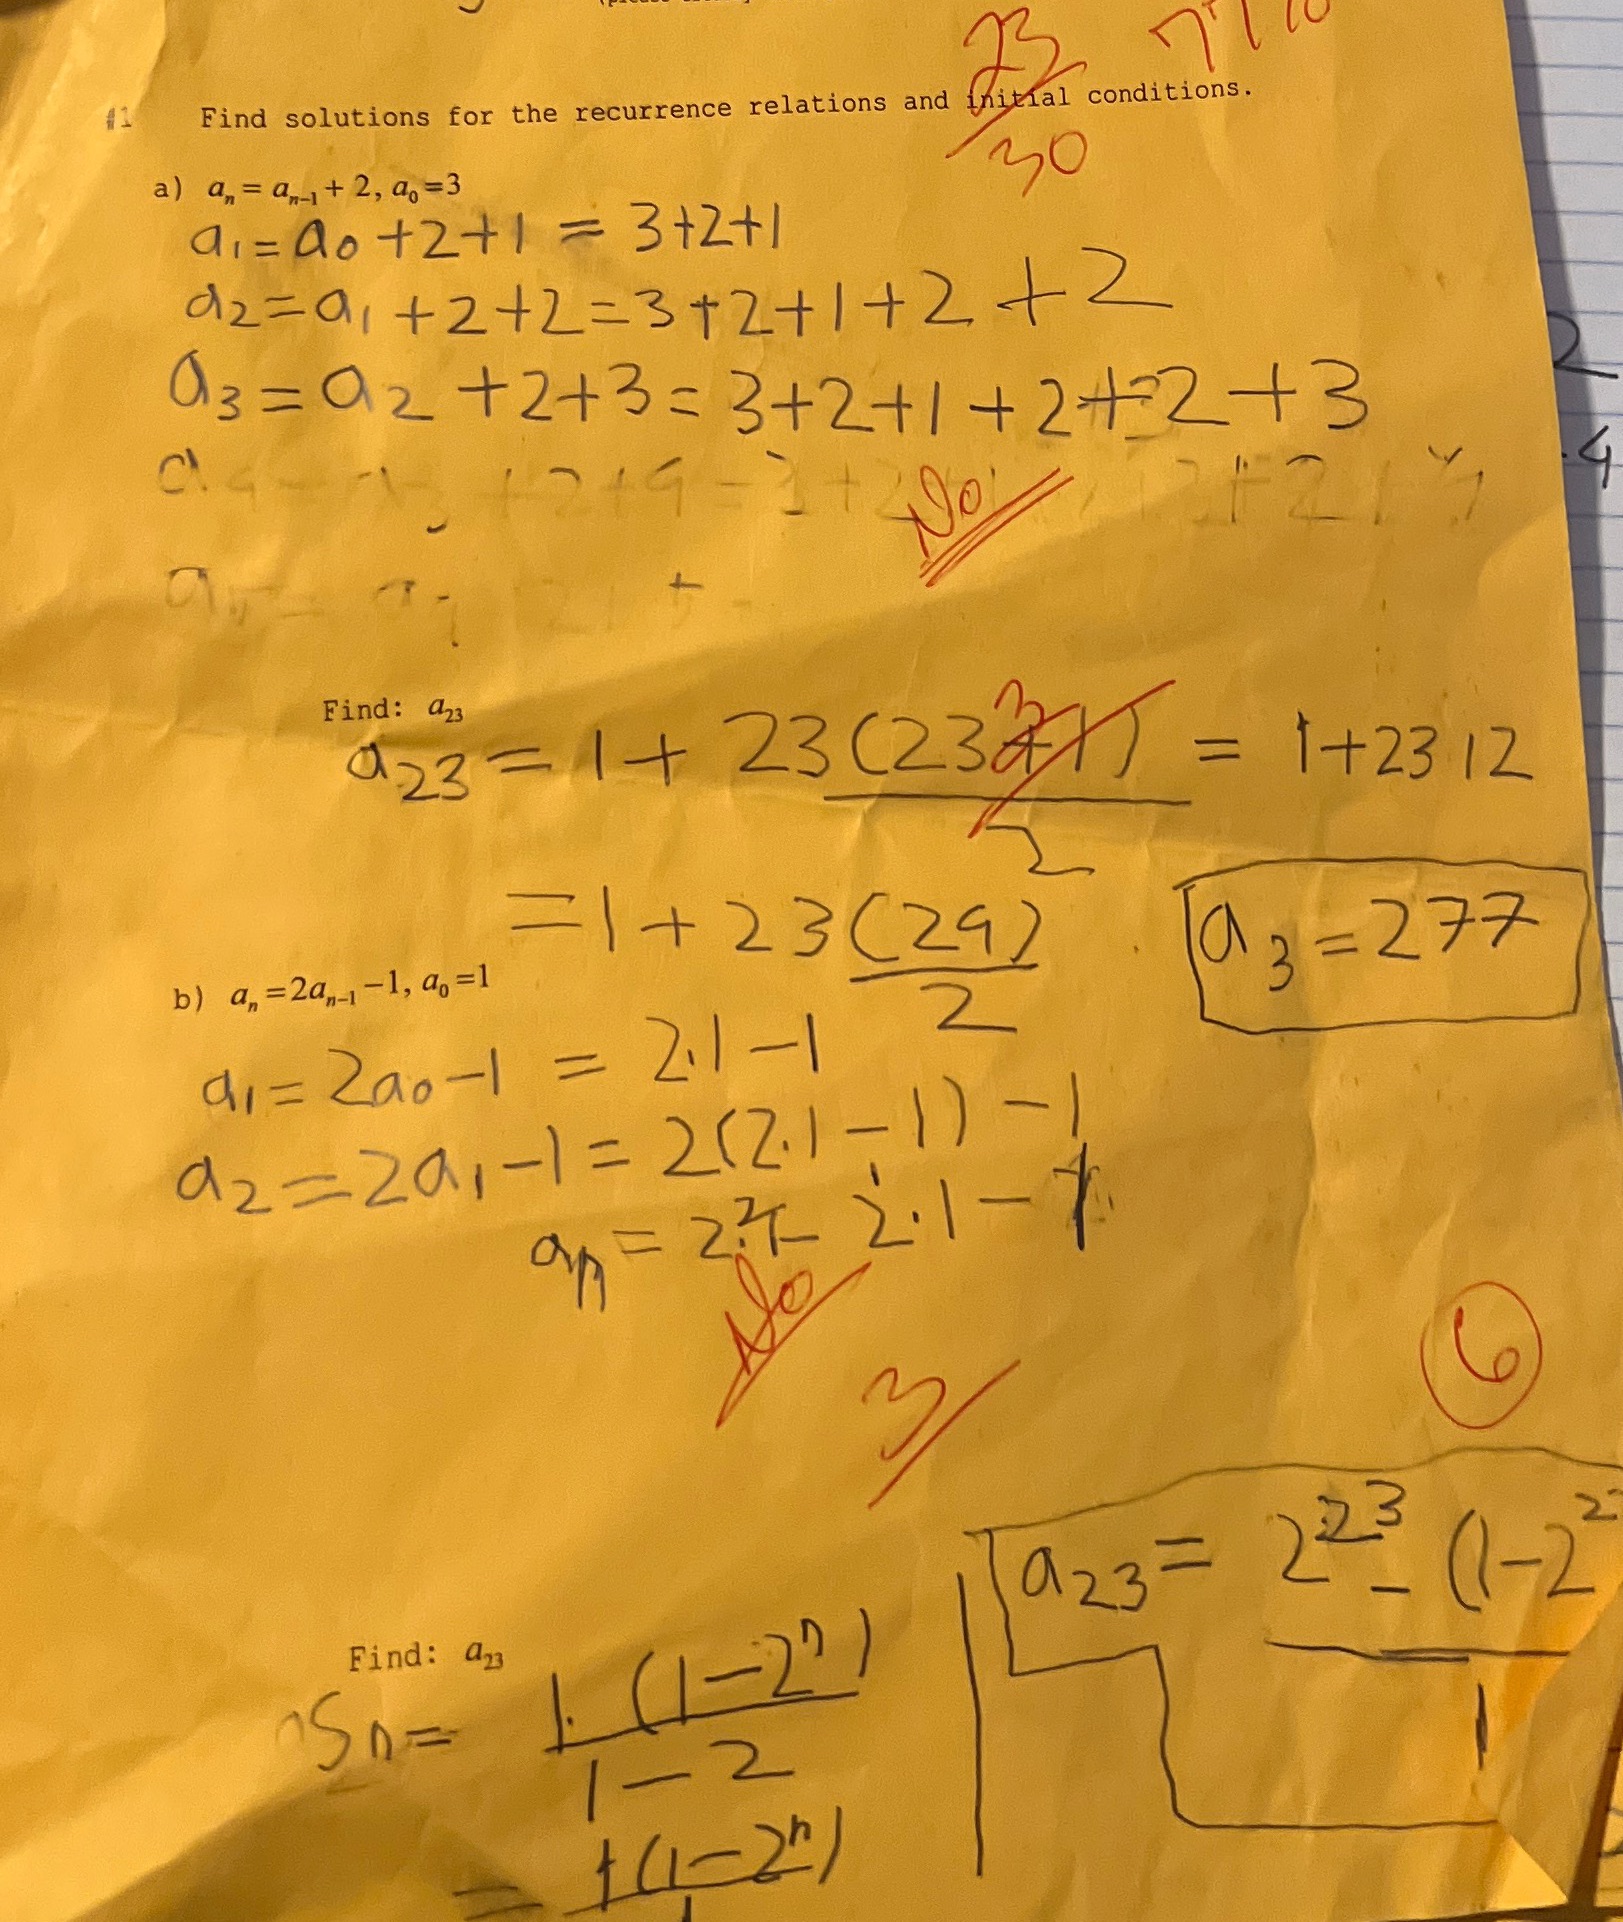 23
30
#1 Find solutions for the recurrence relations and initial conditions.
a) aₙ = aₙ₋₁ + 2, a₀ = 3
a₁ = a₀ + 2 + 1 = 3 + 2 + 1
a₂ = a₁ + 2 + 2 = 3 + 2 + 1 + 2 + 2
a₃ = a₂ + 2 + 3 = 3 + 2 + 1 + 2 + 2 + 3
No
Find: a₂₃
a₂₃ = 1 + 23(23+1) = 1 + 23 12
2
3
= 1 + 23(24)
2
a₃ = 277
b) aₙ = 2aₙ₋₁ − 1, a₀ = 1
a₁ = 2a₀ − 1 = 2.1 − 1
a₂ = 2a₁ − 1 = 2(2.1 − 1) − 1
aₙ = 2² − 2.1 − 1
No
3
6
a₂₃ = 2²³ − (1 − 2²
1
Find: a₂₃
Sₙ = 1.(1 − 2ⁿ)
1 − 2
= 1(1 − 2ⁿ)